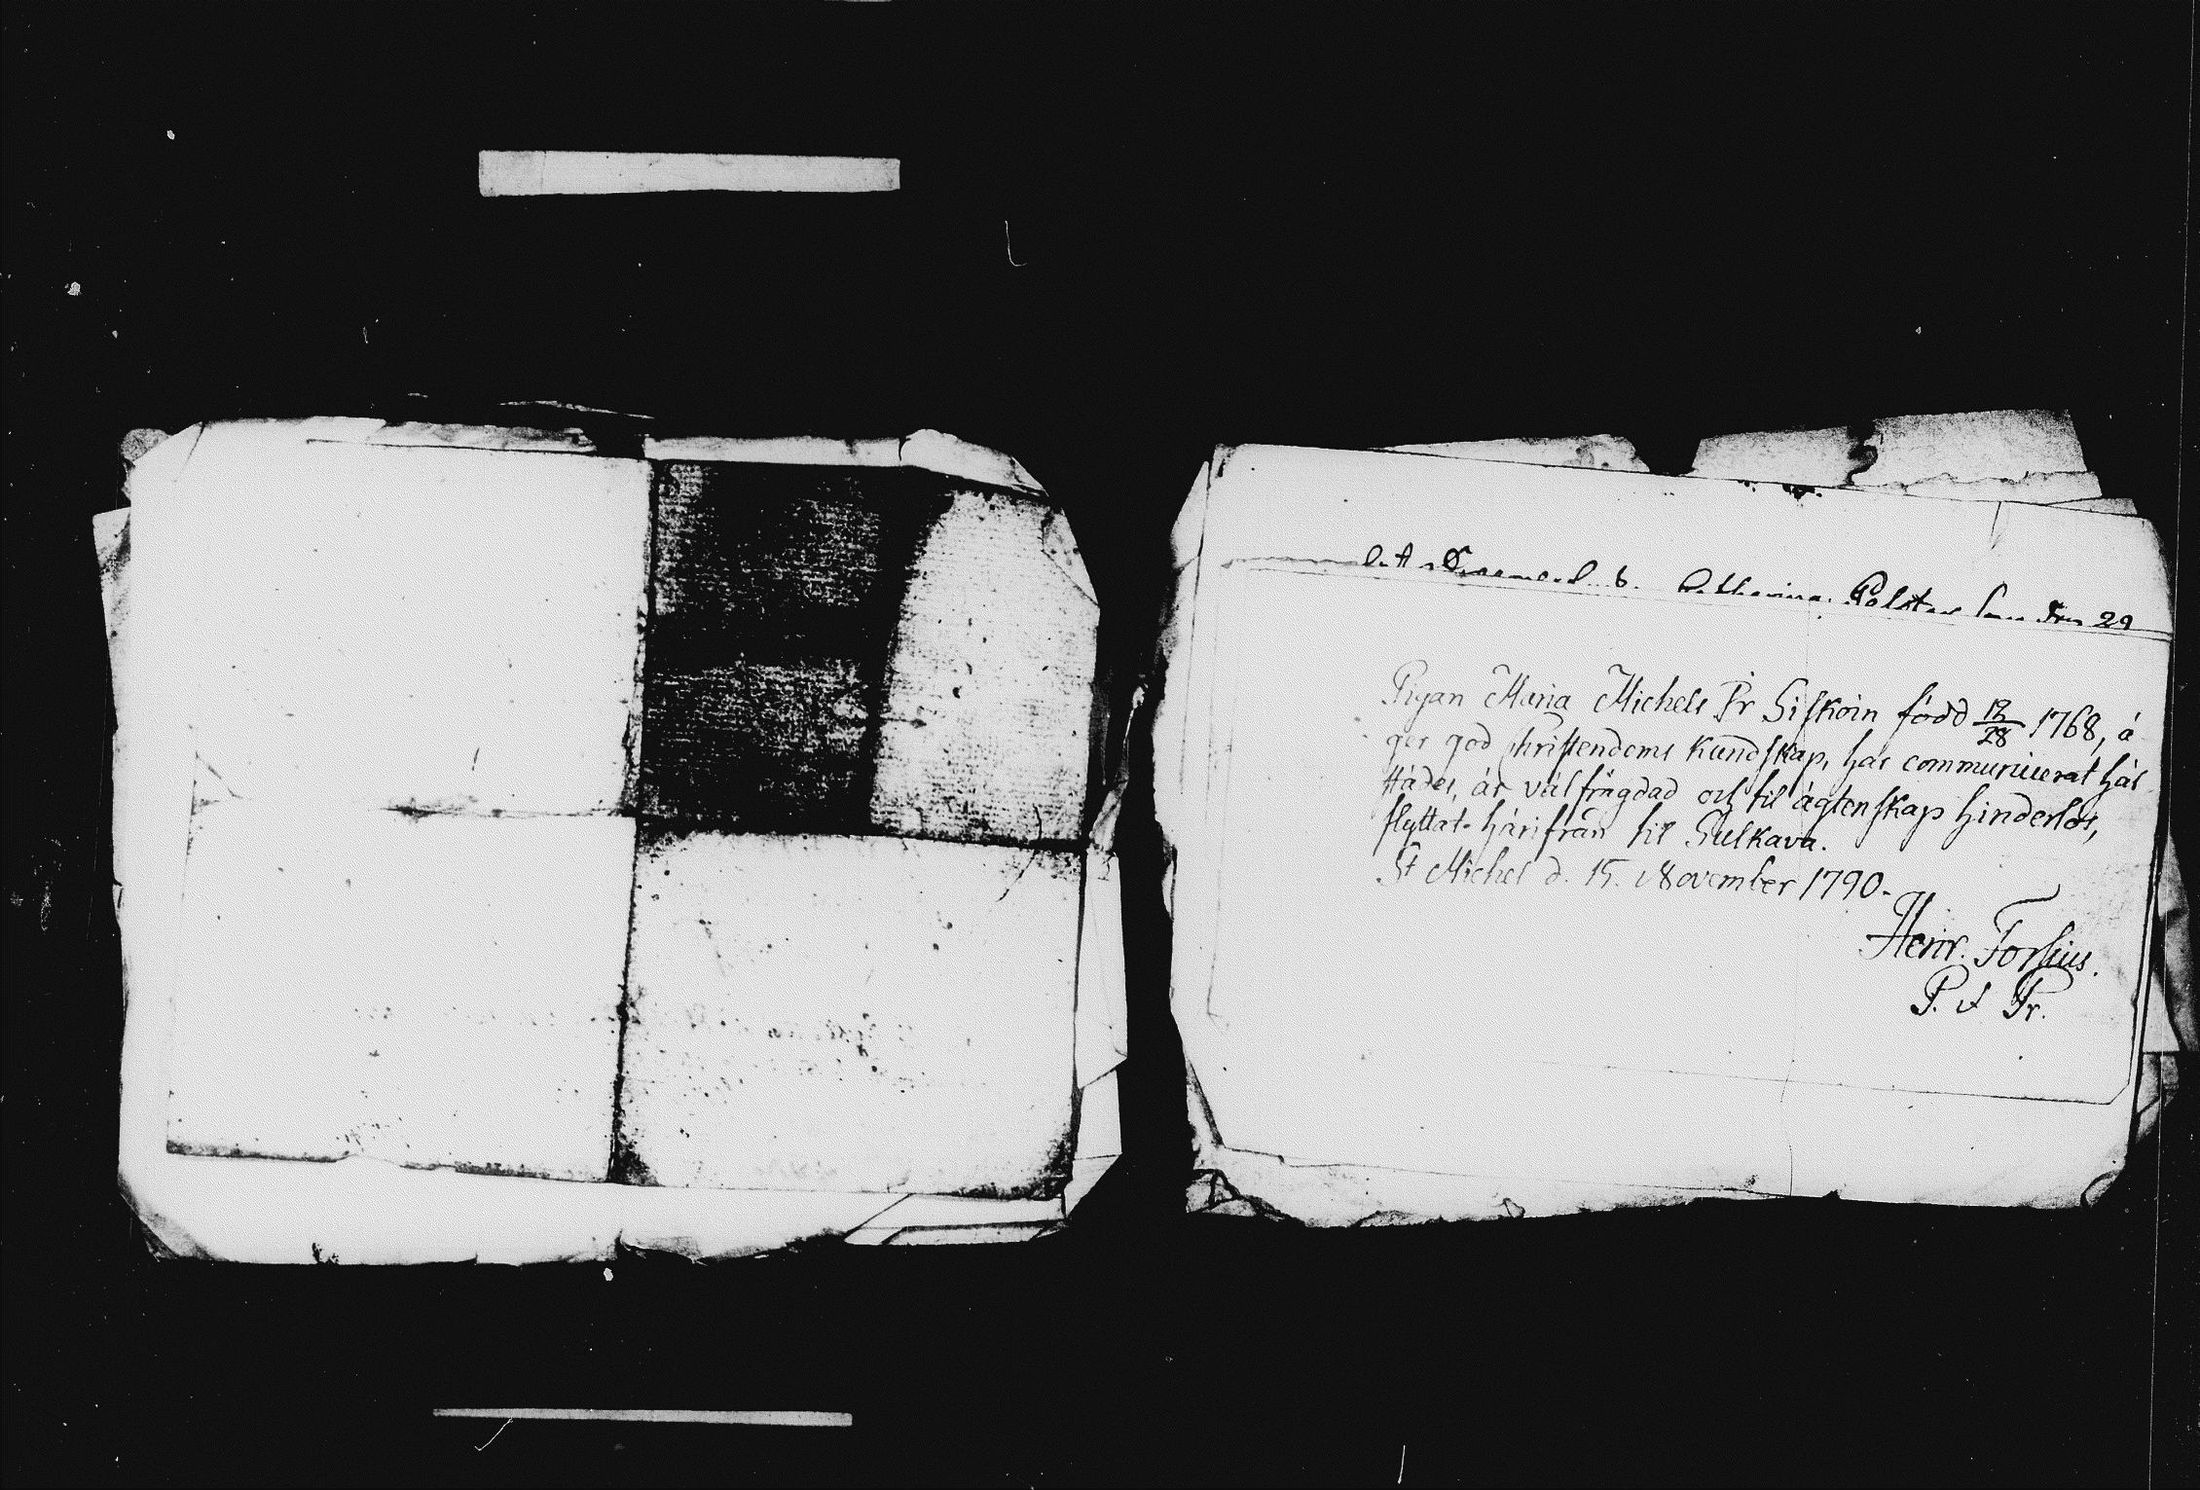 Catharina Polster 29
Pigan Maria Michels Dr Siskoin född 12/28 1768, ä
ger god christendoms kundskap, har communicerat här
städes, är välfrägdad och til ägtenskap hinderlös,
flyttat härifrån til Sulkava.
St Michel d. 15. November 1790.
Henr. Forsius.
P. & Pr.